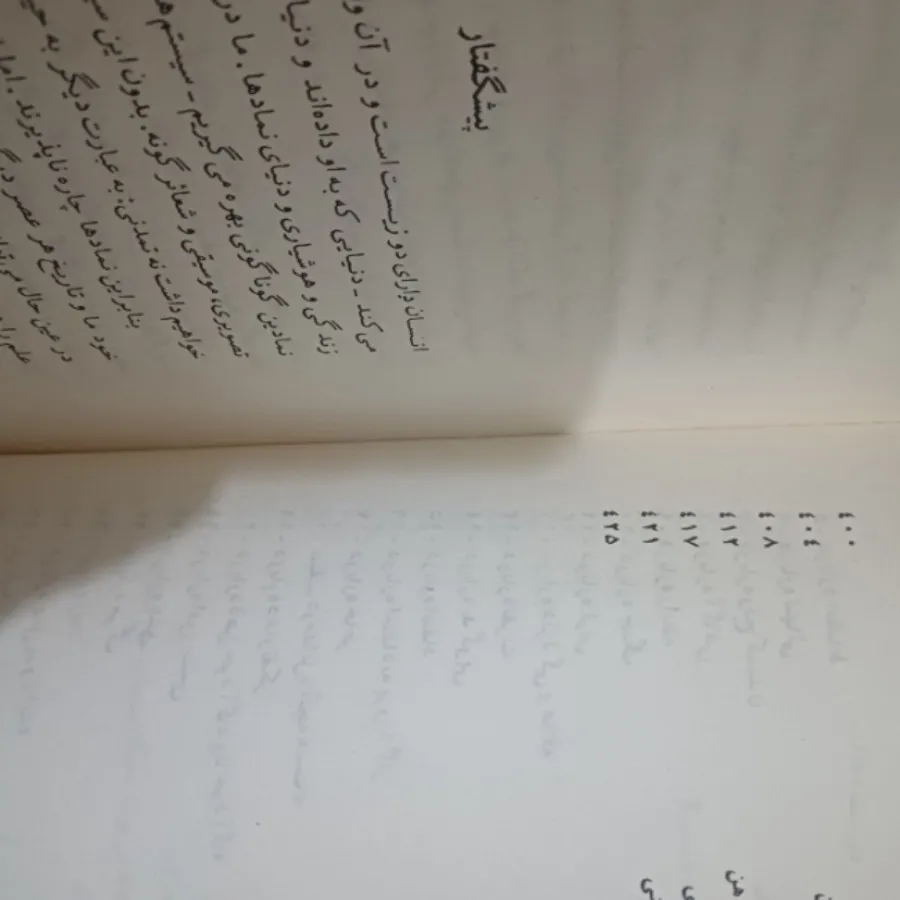 ۴۰۰
۴۰۴
۴۰۸
۴۱۲
۴۱۷
۴۲۱
۴۲۵
پیشگفتار
انسان دارای دو زیست است و در آن
می‌کند - دنیایی که به او داده‌اند و
زندگی و هوشیاری و دنیای نمادها. ما در
نمادین گوناگونی بهره می گیریم -
تصویری، موسیقی و شعائر گونه. بدون این
خواهیم داشت نه تمدنی: به عبارت دیگر به
بنابراین نمادها چاره ناپذیرند. اما
خود ما و تاریخ هر عصر
در عین حال
علم را